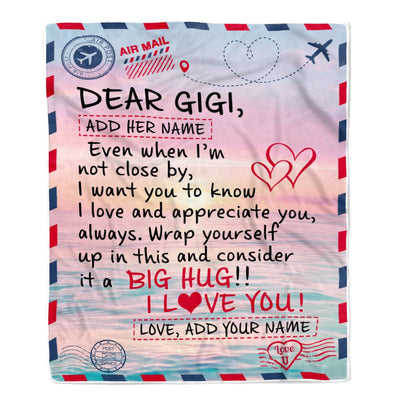 AIR POST
AIR MAIL
DEAR GIGI,
ADD HER NAME
Even when I'm
not close by,
I want you to know
I love and appreciate you,
always. Wrap yourself
up in this and consider
it a BIG HUG!!
I LOVE YOU!
LOVE, ADD YOUR NAME
POST
Love
U